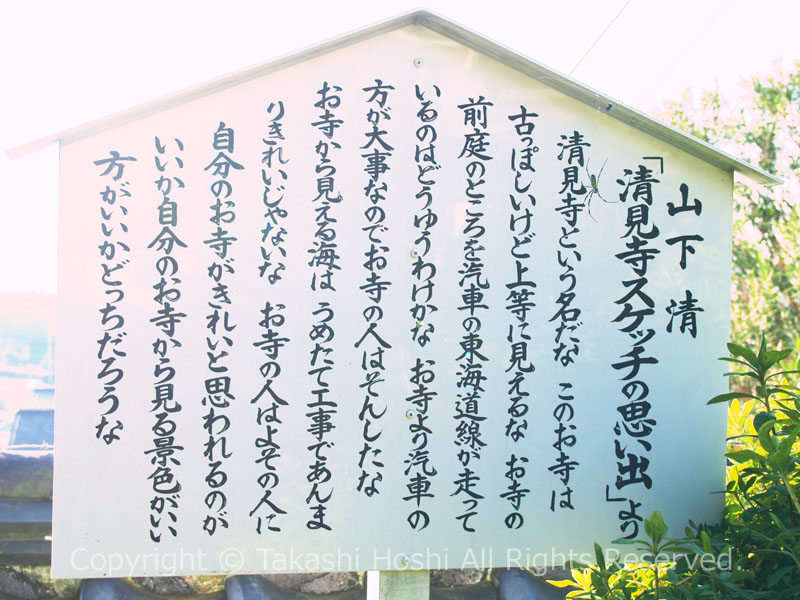 山下 清
「清見寺スケッチの思い出」より
清見寺という名だな このお寺は
古っぽしいけど上等に見えるな お寺の
前庭のところを汽車の東海道線が走って
いるのはどうゆうわけかな お寺より汽車の
方が大事なのでお寺の人はそんしたな
お寺から見える海は うめたて工事であんま
りきれいじゃないな お寺の人はよその人に
自分のお寺がきれいと思われるのが
いいか自分のお寺から見る景色がいい
方がいいかどっちだろうな
Copyright © Takashi Hoshi All Rights Reserved.